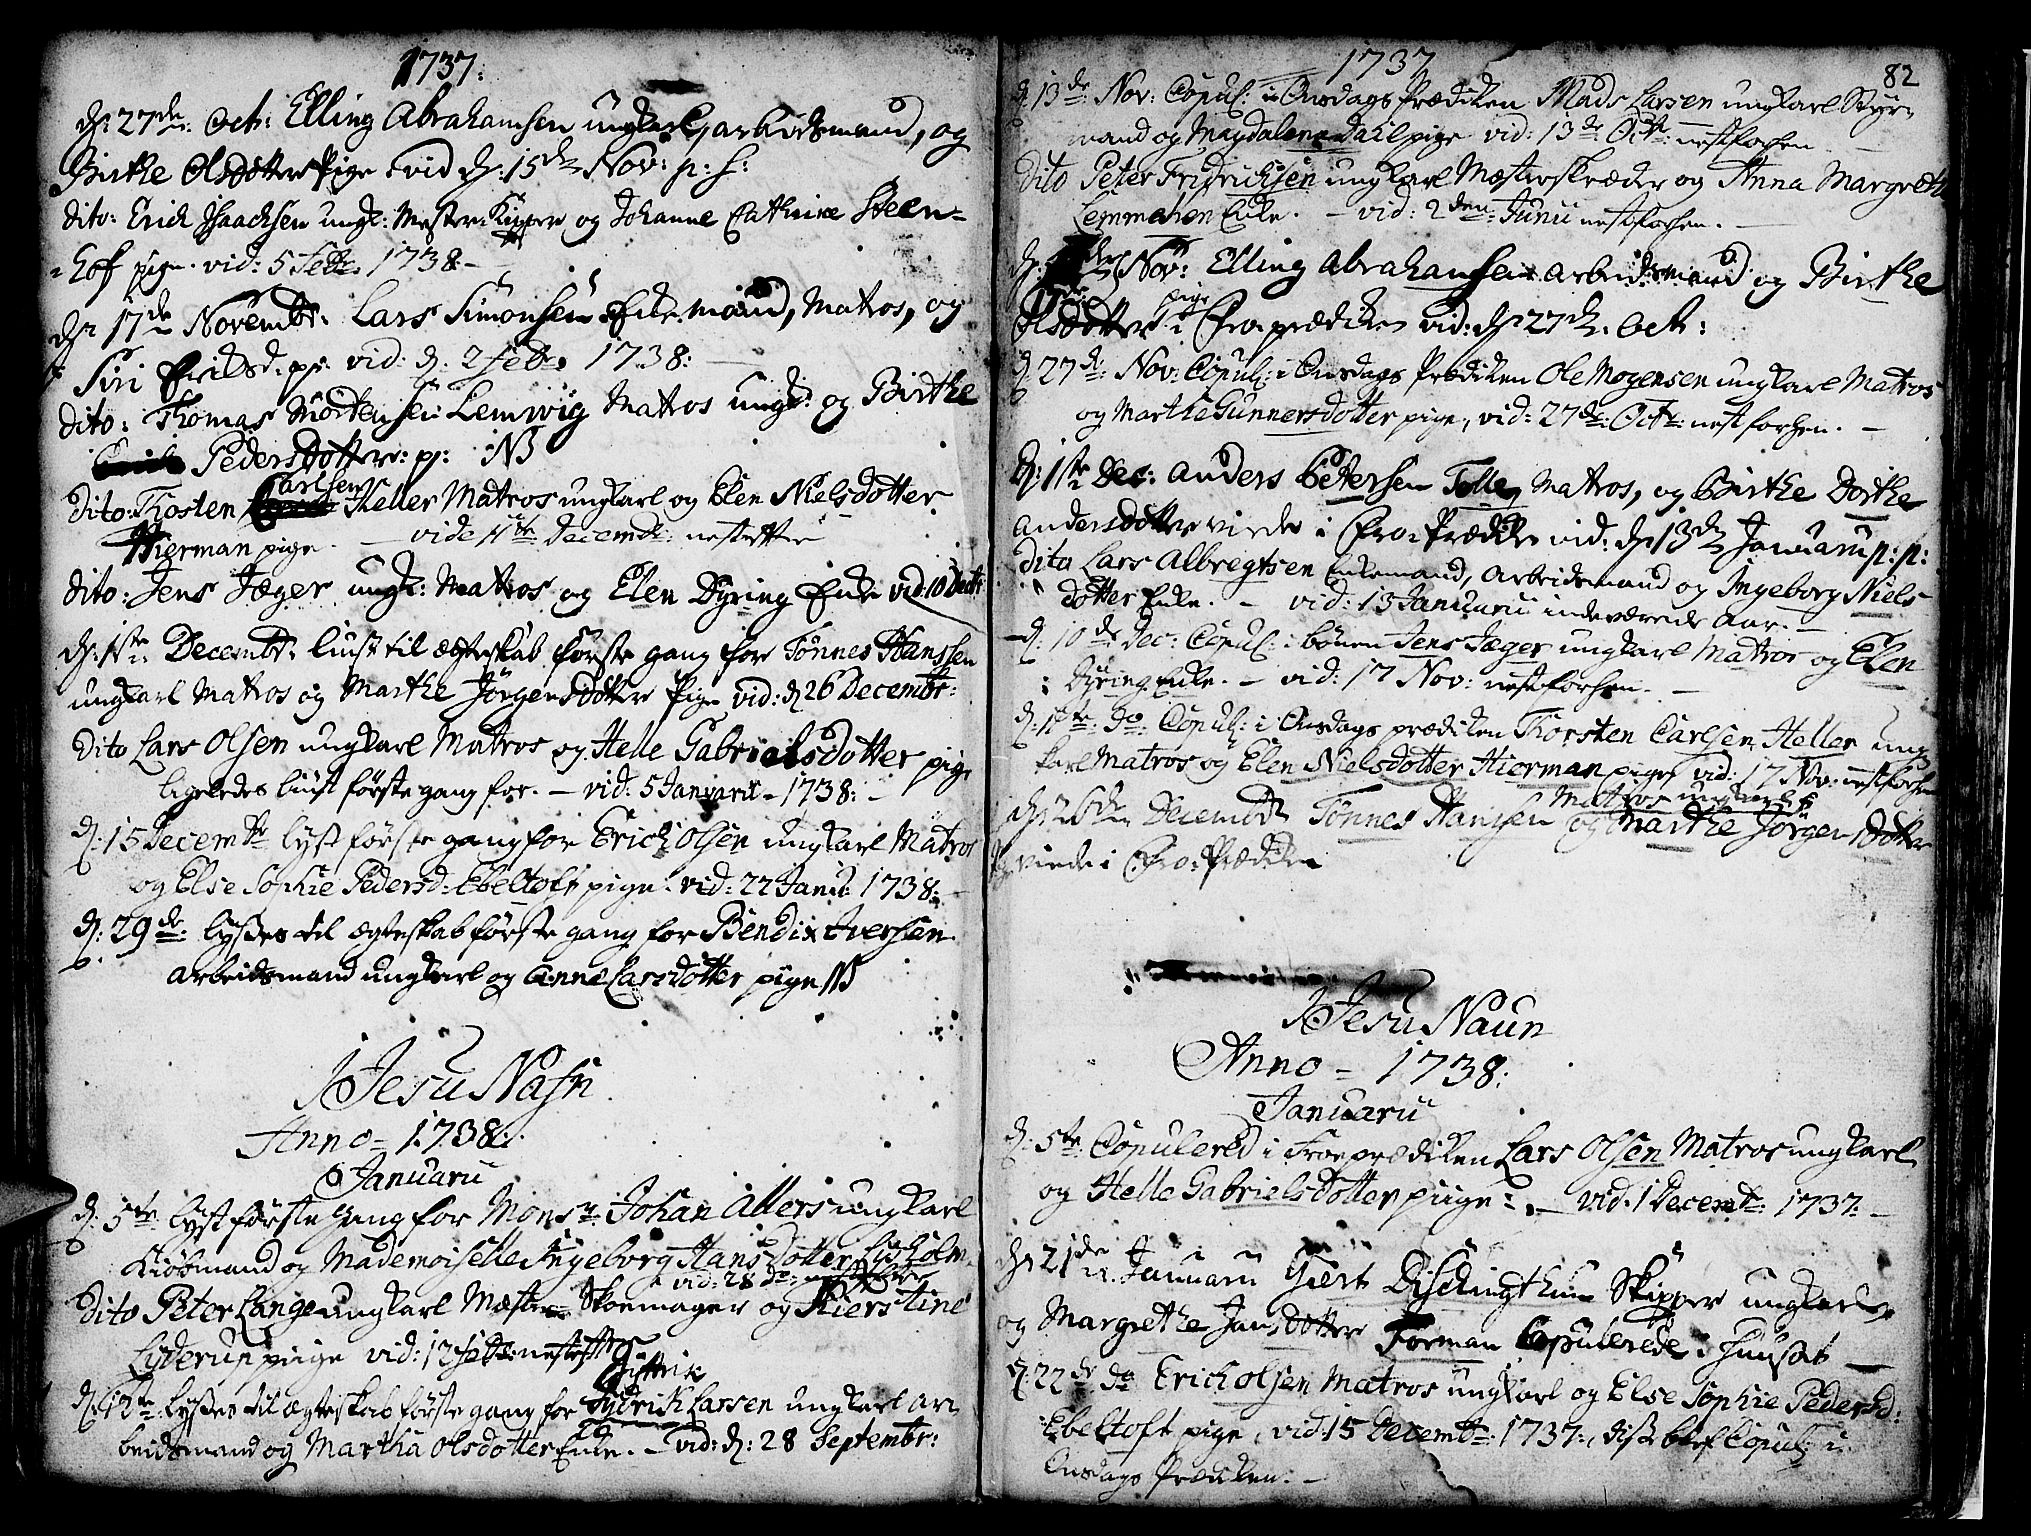 1737:
d: 27de Oct: Elling Abrahamsen ungkarl, arbeidsmand, og
Birthe Olsdotter Pige vid d: 15de Nov: p: h:
dito: Erich Isaachsen ungk: Mester: Kipper og Johanne Cathrine Steen-
-hof pige. vid: 5 Febr. 1738 -
d: 17de Novembr: Lars Simonsen Enkemand, Matros, og
Siri Erilsd: pi: vid: d: 2 Febr. 1738: -
dito: Thomas Mortensen Lemwig Matros ungk: og Birthe
Pedersdotter: pi: NB
dito: Thosten Carlsen Heller Matros ungkarl og Elen Nielsdotter
Hierman pige. - vide 11te Decembr: nestefter
dito: Jens Jæger ungk: Matros og Elen Dyring Enke vid: 10 Decbr
d: 1ste Decembr: liust til ægteskab første gang for Tønnes Hanssen
ungkarl Matros og Marthe Jørgensdotter Pige vid: d 26 Decembr:
dito Lars Olsen ungkarl Matros og Helle Gabrielsdotter pige
ligeledes liust første gang for. - vid: 5 Januarii - 1738: -
d: 15 Decembr lyst første gang for Erich Olsen ungkarl Matros
og Else Sophie Pedersd: Ebeltoft pige. vid: 22 Janu: 1738: -
d: 29de lyses til ægteskab første gang for Bendix Iversen
arbeidsmand ungkarl og Anne Larsdotter pige NB
I Jesu Nafn
Anno - 1738:
Januarii
d: 5te lyst første gang for Monsr. Johan Allers ungkarl
Kiøbmand og Mademoiselle Ingeborg Hans Dotter Lysholm
vid: 28 do:
dito Peter Lange ungkarl Mester Skoemager og Kierstine
Lyderup pige vid: 12 Febr: nestefter
Gittrik
d: 12te lyses til ægteskab første gang for Fridrik Larsen ungkarl ar-
beidsmand og Martha Olsdotter Enke. - vid: d: 28 Septembr:
1737
82
d. 13de: Nov: Copul: i Onsdags Prædiken Mads Larsen ungkarl Styr-
mand og Magdalena Dahl pige vid: 13de Octr: nestforhen
dito Peter Fridrichsen ungkarl Mesterskræder og Anna Margreth
Lemmahen Enke. - vid: 2den Junii nestforhen. -
Nov: Elling Abrahamsen arbeidsmand og Birthe
pige
Olsdotter i Froprædiken vid: d: 27de Oct:
d: 27de: Nov: Copul: i Onsdags Prædiken Ole Mogensen ungkarl Matros
og Marthe Gunnersdotter pige, vid: 27de: Octr: nestforhen. -
d: 1ste Dec: Anders Petersen Tolle, Matros, og Birthe Dorthe
Andersdotter viede i Froe Prædiken vid: d: 13de Januarii p: p:
dito Lars Albregtsen Enkemand, Arbeidsmand og Ingeborg Niels
dotter Enke. - vid: 13 Januarii indeværende Aar. -
d. 10de Dec: Copul: i bønen Jens Jæger ungkarl Matros og Elen
Dyring Enke. - vid: 17 Nov: nestforhen. -
d. 11te: do: Copul: i Onsdags prædiken Thorsten Carlsen Heller ung
karl Matros og Elen Nielsdotter Hierman pige, vid: 17 Nov: nestforhen
Matros ungkarl
d: 26de Decembr Tønnes Hansen og Marthe Jørgensdotter
viede i Froe Prædiken
I Jesu Naun
Anno - 1738:
Januarii
d. 5te Copulered i Froeprædiken Lars Olsen Matros ungkarl
og Helle Gabrielsdotter piige: - vid: 1 Decembr: 1737: -
d: 21de Januarii Giert Diskingthun Skipper ungkarl
og Margrethe Jansdotter Forman Copulerede i Huuset -
d. 22de do Erich Olsen Matros ungkarl og Else Sophie Pedersd:
Ebeltoft pige, vid: 15 Decembr: 1737:, disse blef Copul: i
Onsdags Prædiken. -